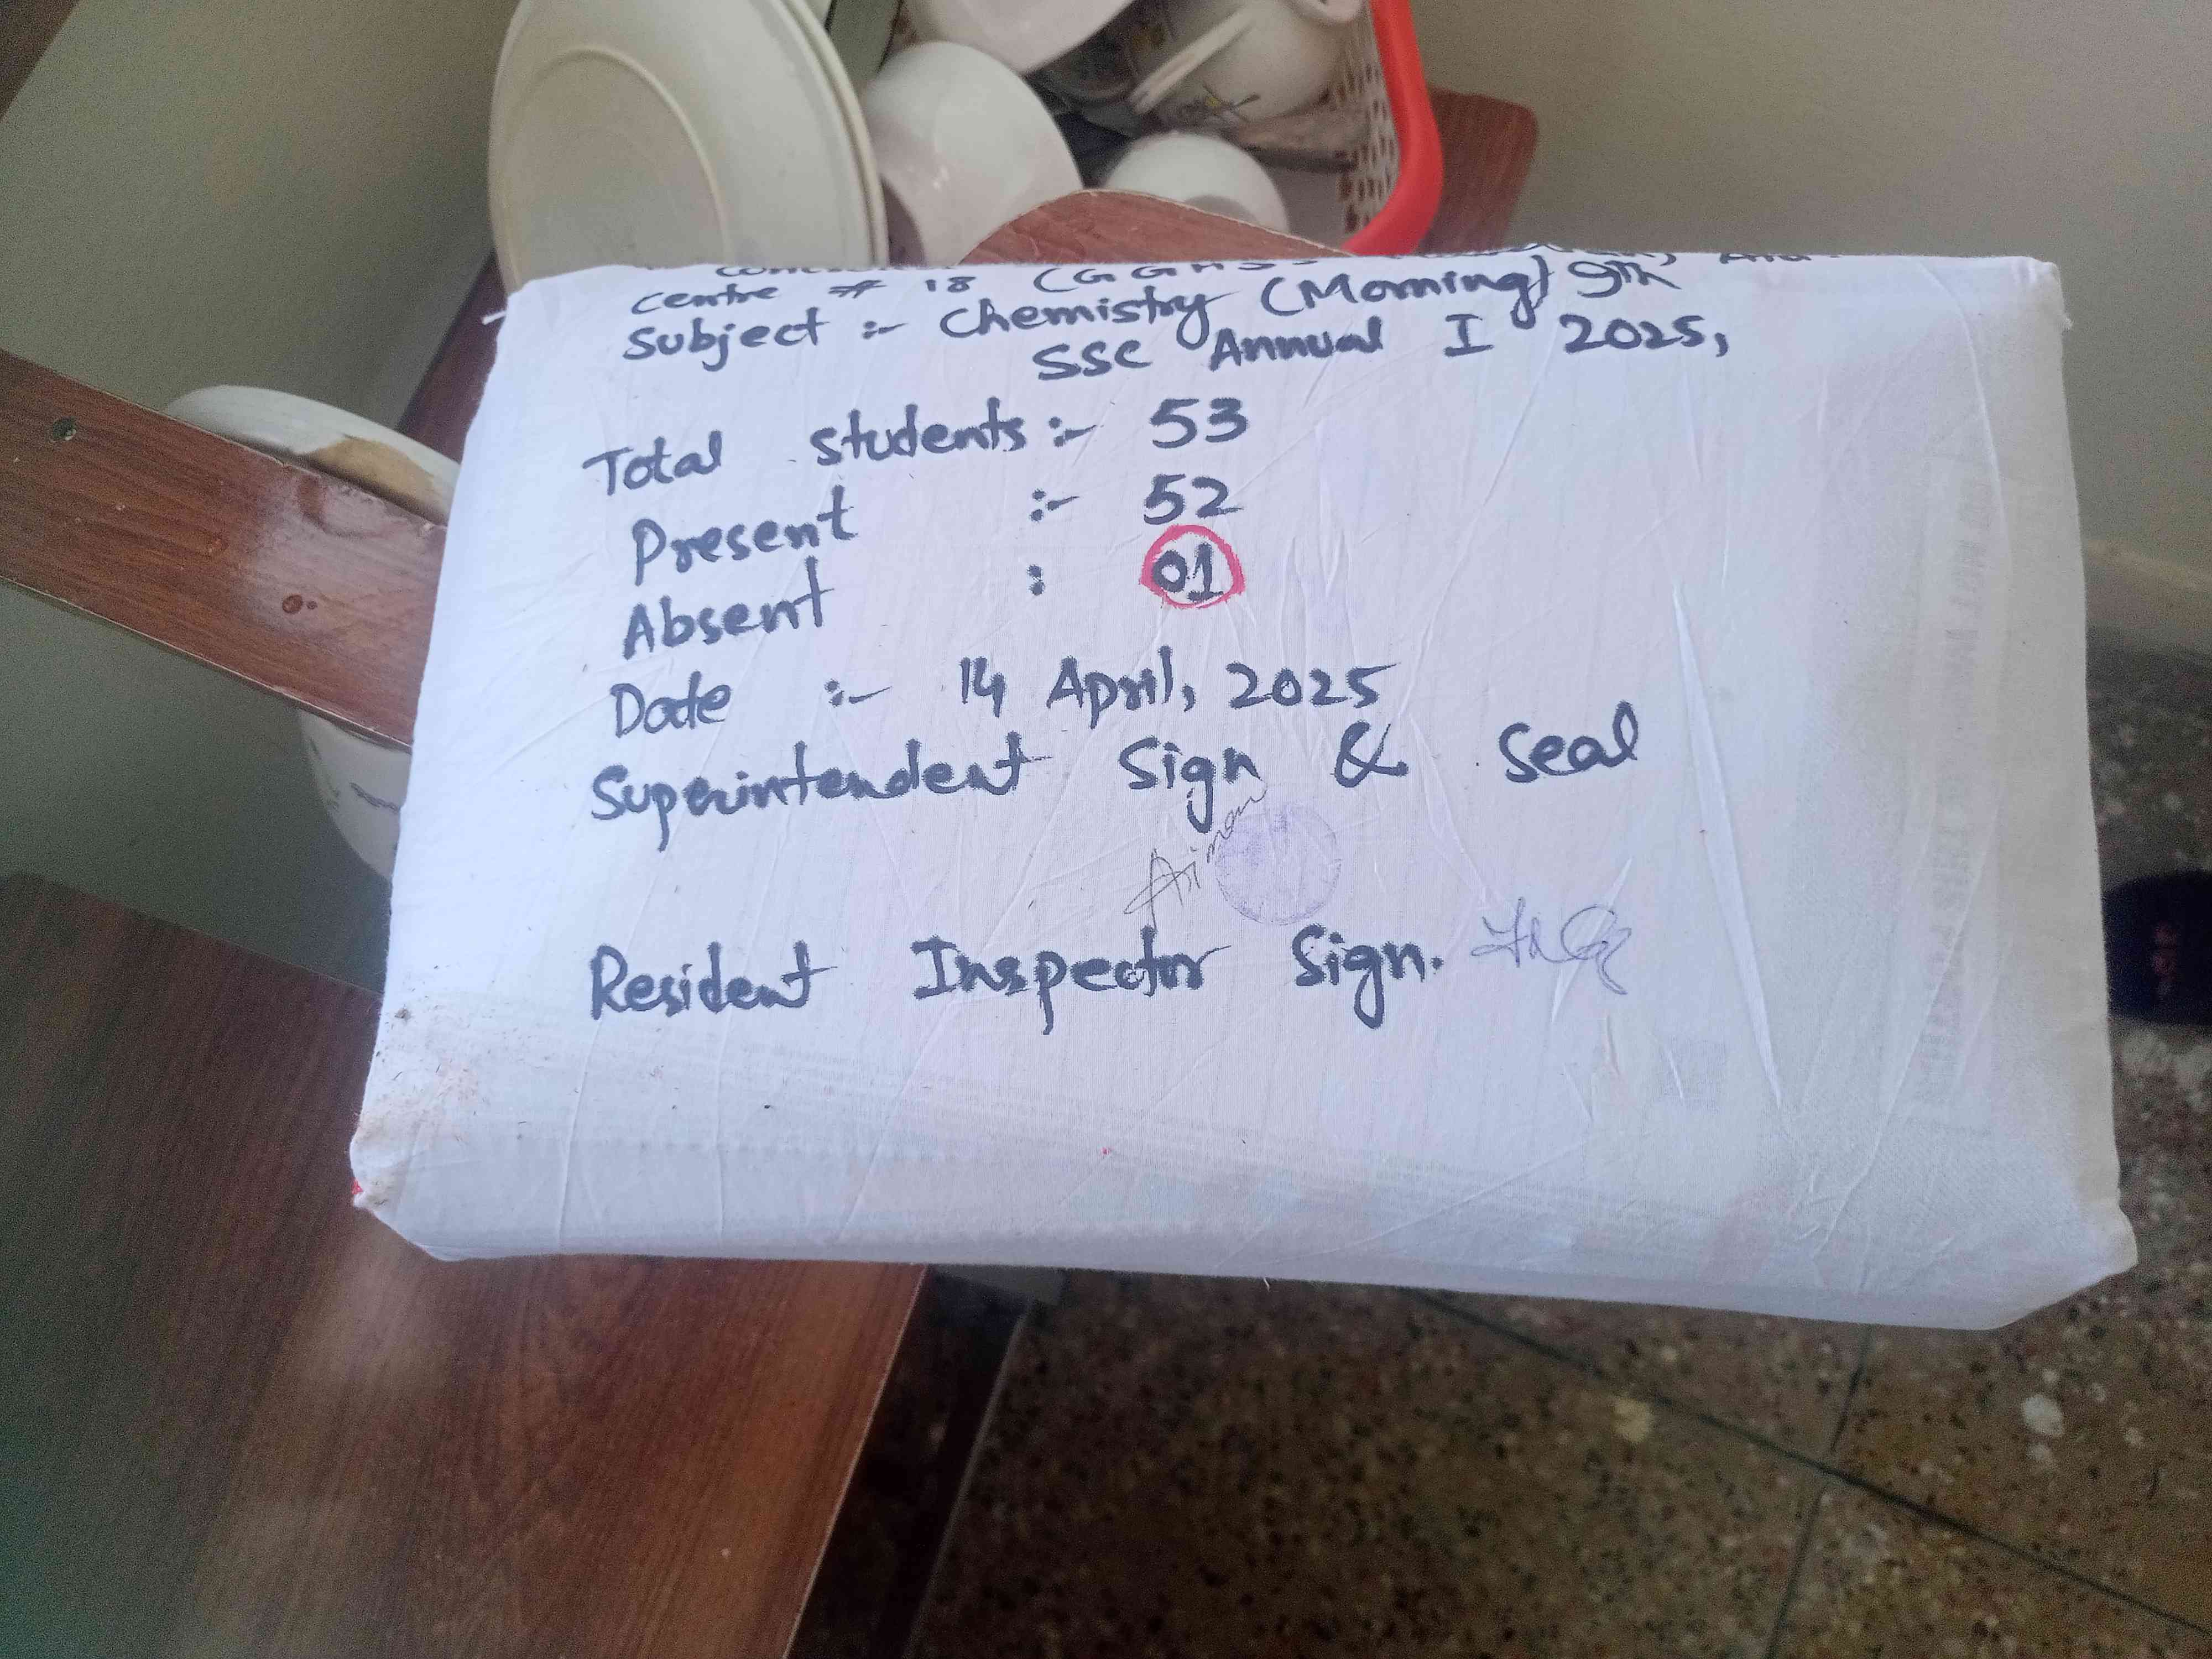 Centre # 18 (GGHSS
Subject :- Chemistry (Morning) 9th
SSC Annual I 2025,
Total students :- 53
Present :- 52
Absent : 01
Date :- 14 April, 2025
Superintendent Sign & Seal
Aiman
Resident Inspector Sign.